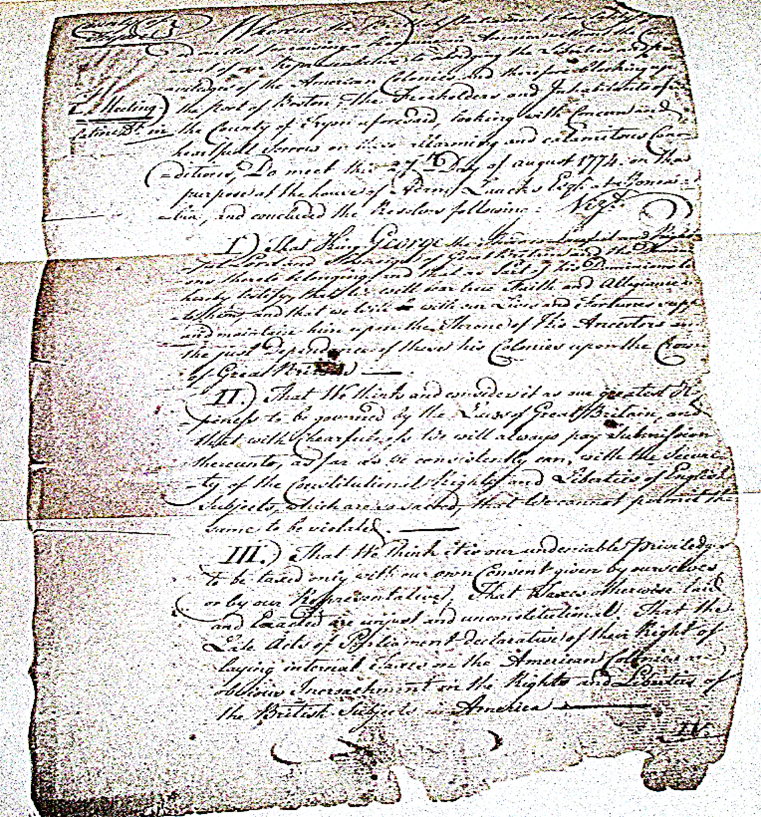 County of
Tryon
Whereas the British Parliament has lately
and the Liberties and
of the American Colonies and
At a Meeting
the port of Boston, the Freeholders and Inhabitants of
the County of Tryon aforesaid looking with Concern and
heartfelt Sorrow on this allarming and calamitous Con-
-dition, Do meet this 27th Day of august 1774 on that
purpose at the house of Adam Loucks Esqr at
-bia, and concluded the Resolves following: Vizt.
I.) That King George the
and that as part of his Dominions
testify, that we will bear true Faith and Allegiance
and that we will with our Lives and Fortunes supp
and maintain him upon the Throne of His Ancestors and
the just Dependence of these his Colonies upon the Crow
of Great Britain —
II.) That We think and consider it as our greatest H
piness to be governed by the Laws of Great Britain, and
that with Chearfulness We will always pay Submission
thereunto, as far as we consistently can, with the Securi
-ty of the Constitutional Rights and Liberties of English
Subjects, which are so sacred, that We cannot permit the
same to be violated —
III.) That We think it is our undeniable Priviledge
to be taxed only with our own Consent given by ourselves
or by our Representatives, That Taxes otherwise laid
and Exacted are unjust and unconstitutional, That the
Late Acts of Parliament declarative of their Right of
laying internal Taxes on the American Colonies are
obvious Incroachment on the Rights and Liberties of
the British Subjects in America —
IV.